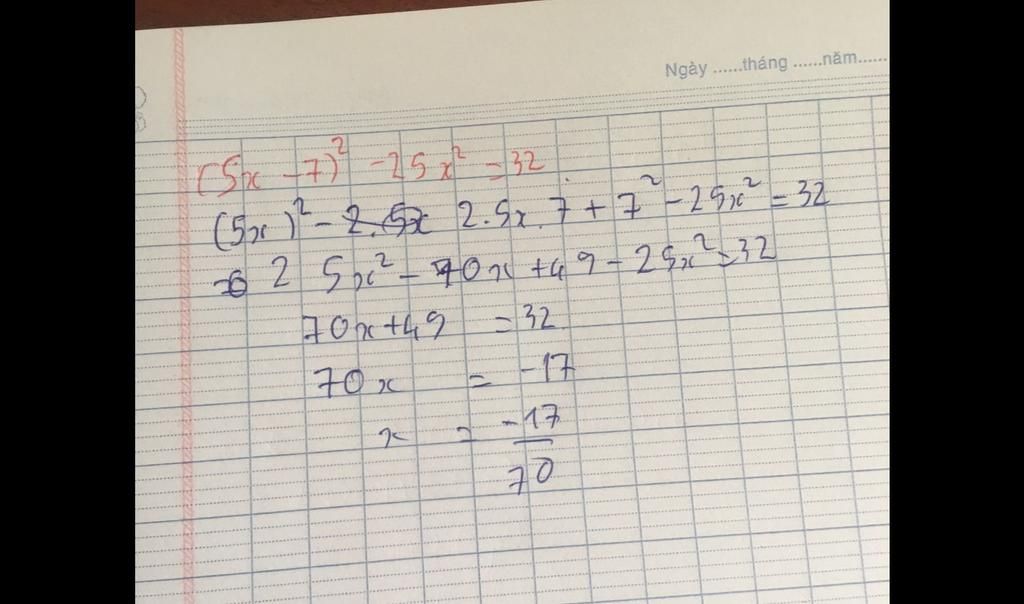 Ngày ......tháng ......năm......
(5x - 7)² - 25x² = 32
(5x)² - 2.5x 2.5x.7 + 7² - 25x² = 32
25x² - 70x + 49 - 25x² = 32
70x + 49 = 32
70x = -17
x = -17/70